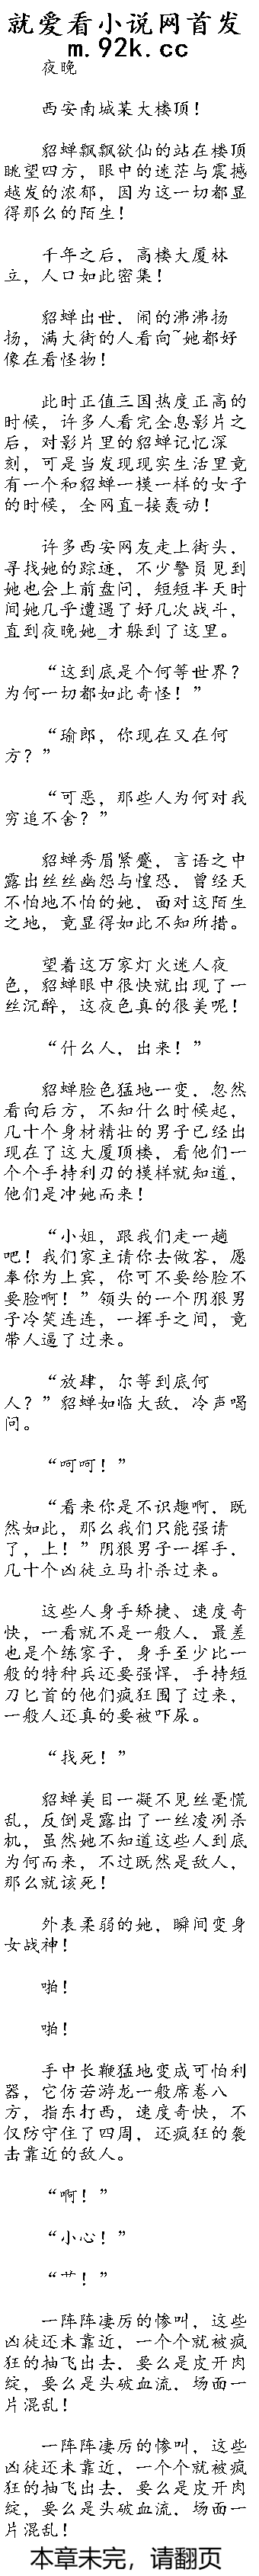 就爱看小说网首发
m.92k.cc
夜晚
西安南城某大楼顶！
貂蝉飘飘欲仙的站在楼顶
眺望四方，眼中的迷茫与震撼
越发的浓郁，因为这一切都显
得那么的陌生！
千年之后，高楼大厦林
立，人口如此密集！
貂蝉出世，闹的沸沸扬
扬，满大街的人看向~她都好
像在看怪物！
此时正值三国热度正高的
时候，许多人看完全息影片之
后，对影片里的貂蝉记忆深
刻，可是当发现现实生活里竟
有一个和貂蝉一模一样的女子
的时候，全网直-接轰动！
许多西安网友走上街头，
寻找她的踪迹，不少警员见到
她也会上前盘问，短短半天时
间她几乎遭遇了好几次战斗，
直到夜晚她_才躲到了这里。
“这到底是个何等世界？
为何一切都如此奇怪！”
“瑜郎，你现在又在何
方？”
“可恶，那些人为何对我
穷追不舍？”
貂蝉秀眉紧蹙，言语之中
露出丝丝幽怨与惶恐，曾经天
不怕地不怕的她，面对这陌生
之地，竟显得如此不知所措。
望着这万家灯火迷人夜
色，貂蝉眼中很快就出现了一
丝沉醉，这夜色真的很美呢！
“什么人，出来！”
貂蝉脸色猛地一变，忽然
看向后方，不知什么时候起，
几十个身材精壮的男子已经出
现在了这大厦顶楼，看他们一
个个手持利刃的模样就知道，
他们是冲她而来！
“小姐，跟我们走一趟
吧！我们家主请你去做客，愿
奉你为上宾，你可不要给脸不
要脸啊！”领头的一个阴狠男
子冷笑连连，一挥手之间，竟
带人逼了过来。
“放肆，尔等到底何
人？”貂蝉如临大敌，冷声喝
问。
“呵呵！”
“看来你是不识趣啊，既
然如此，那么我们只能强请
了，上！”阴狠男子一挥手，
几十个凶徒立马扑杀过来。
这些人身手矫捷、速度奇
快，一看就不是一般人，最差
也是个练家子，身手至少比一
般的特种兵还要强悍，手持短
刀匕首的他们疯狂围了过来，
一般人还真的要被吓尿。
“找死！”
貂蝉美目一凝不见丝毫慌
乱，反倒是露出了一丝凌冽杀
机，虽然她不知道这些人到底
为何而来，不过既然是敌人，
那么就该死！
外表柔弱的她，瞬间变身
女战神！
啪！
啪！
手中长鞭猛地变成可怕利
器，它仿若游龙一般席卷八
方，指东打西，速度奇快，不
仅防守住了四周，还疯狂的袭
击靠近的敌人。
“啊！”
“小心！”
“艹！”
一阵阵凄厉的惨叫，这些
凶徒还未靠近，一个个就被疯
狂的抽飞出去，要么是皮开肉
绽，要么是头破血流，场面一
片混乱！
一阵阵凄厉的惨叫，这些
凶徒还未靠近，一个个就被疯
狂的抽飞出去，要么是皮开肉
绽，要么是头破血流，场面一
片混乱！
本章未完，请翻页